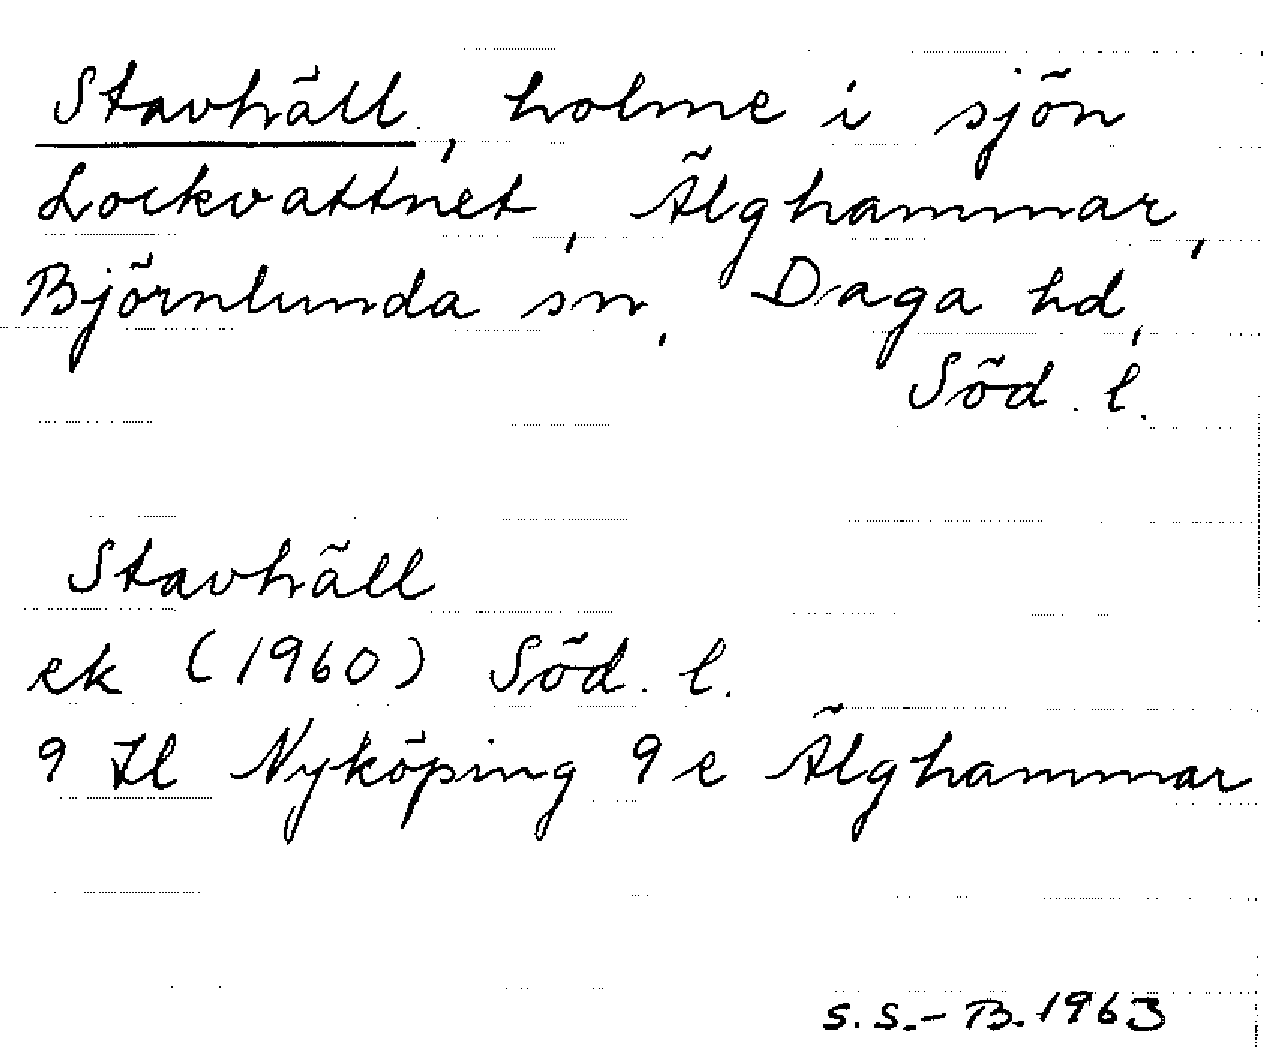 Stavhäll, holme i sjön
Lockvattnet, Älghammar,
Björnlunda sn, Daga hd,
Söd. l.
Stavhäll
ek (1960) Söd. l.
9 Il Nyköping 9 e Älghammar
S.S.-B. 1963